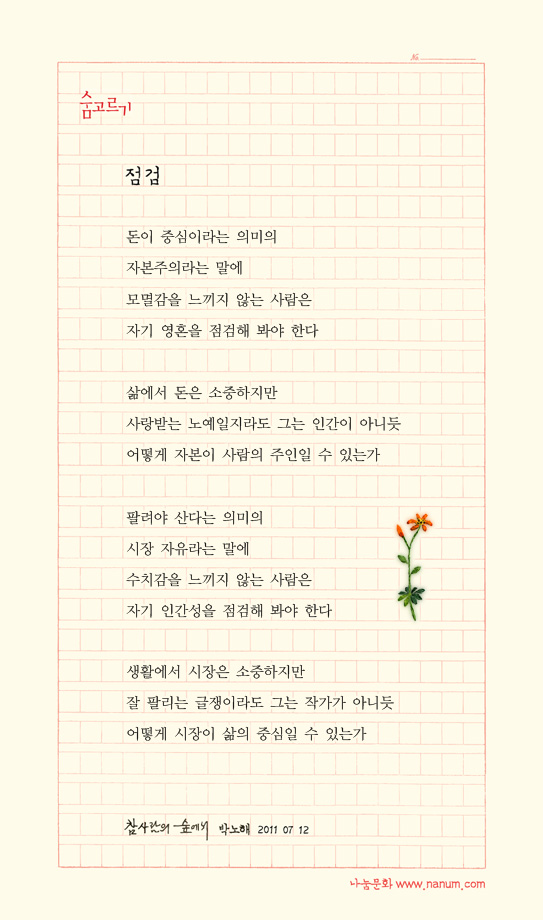 №
숨고르기
점검
돈이 중심이라는 의미의
자본주의라는 말에
모멸감을 느끼지 않는 사람은
자기 영혼을 점검해 봐야 한다
삶에서 돈은 소중하지만
사랑받는 노예일지라도 그는 인간이 아니듯
어떻게 자본이 사람의 주인일 수 있는가
팔려야 산다는 의미의
시장 자유라는 말에
수치감을 느끼지 않는 사람은
자기 인간성을 점검해 봐야 한다
생활에서 시장은 소중하지만
잘 팔리는 글쟁이라도 그는 작가가 아니듯
어떻게 시장이 삶의 중심일 수 있는가
참사람의 숲에서 박노해 2011 07 12
나눔문화 www.nanum.com